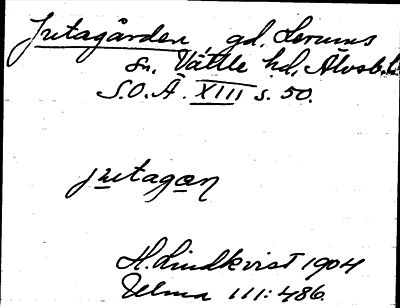 Jutagården, gd. Lerums
sn. Vättle hd, Älvsb. l.
S.O.Ä. XIII s. 50.
jutagæn
H. Lindkvist 1904
Ulma 111:486.